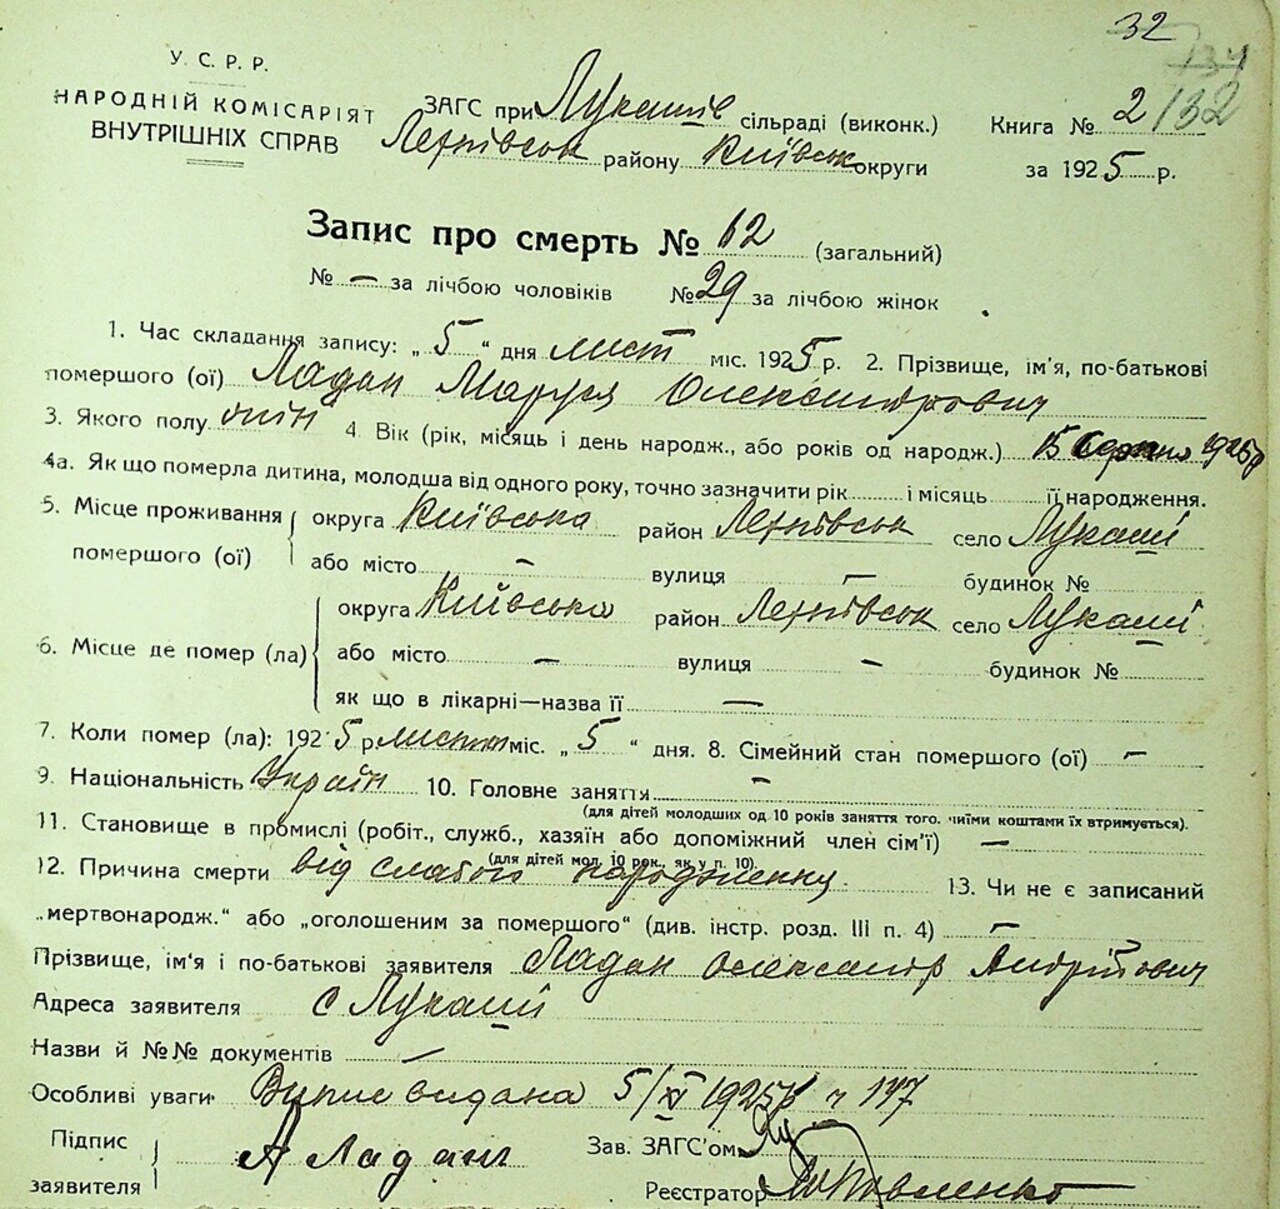 32
134
132
У. С. Р. Р.
НАРОДНІЙ КОМІСАРІЯТ
ВНУТРІШНІХ СПРАВ
ЗАГС при Лукашів сільраді (виконк.)
районy Київськ округи
Книга № 2
за 1925 р.
Запис про смерть № 62 (загальний)
№ — за лічбою чоловіків №29 за лічбою жінок
1. Час складання запису: „ 5 “ дня лист міс. 1925 р. 2. Прізвище, ім'я, по-батькові
помершого (ої) Ладан Маруся Олександрович
3. Якого полу жін 4. Вік (рік, місяць і день народж., або років од народж.) 15 Серпня 1925р
4а. Як що померла дитина, молодша від одного року, точно зазначити рік і місяць її народження.
5. Місце проживання помершого (ої) округа Київська район село Лукаші
або місто — вулиця — будинок №
6. Місце де помер (ла) округа Київська район село Лукаші
або місто — вулиця — будинок №
як що в лікарні—назва її —
7. Коли помер (ла): 1925 р. листоп міс. „ 5 “ дня. 8. Сімейний стан помершого (ої) —
9. Національність Україн 10. Головне заняття —
(для дітей молодших од 10 років заняття того. чиїми коштами їх втримується).
11. Становище в промислі (робіт., служб., хазяїн або допоміжний член сім'ї) —
(для дітей мол. 10 рок., як у п. 10).
12. Причина смерти від слабого народження 13. Чи не є записаний
„мертвонародж.“ або „оголошеним за помершого“ (див. інстр. розд. III п. 4) —
Прізвище, ім'я і по-батькові заявителя Ладан Олександр Андрійович
Адреса заявителя с Лукаші
Назви й №№ документів —
Особливі уваги Випис видана 5/XI 1925р ч 147
Підпис заявителя А Ладан
Зав. ЗАГС'ом
Реєстратор